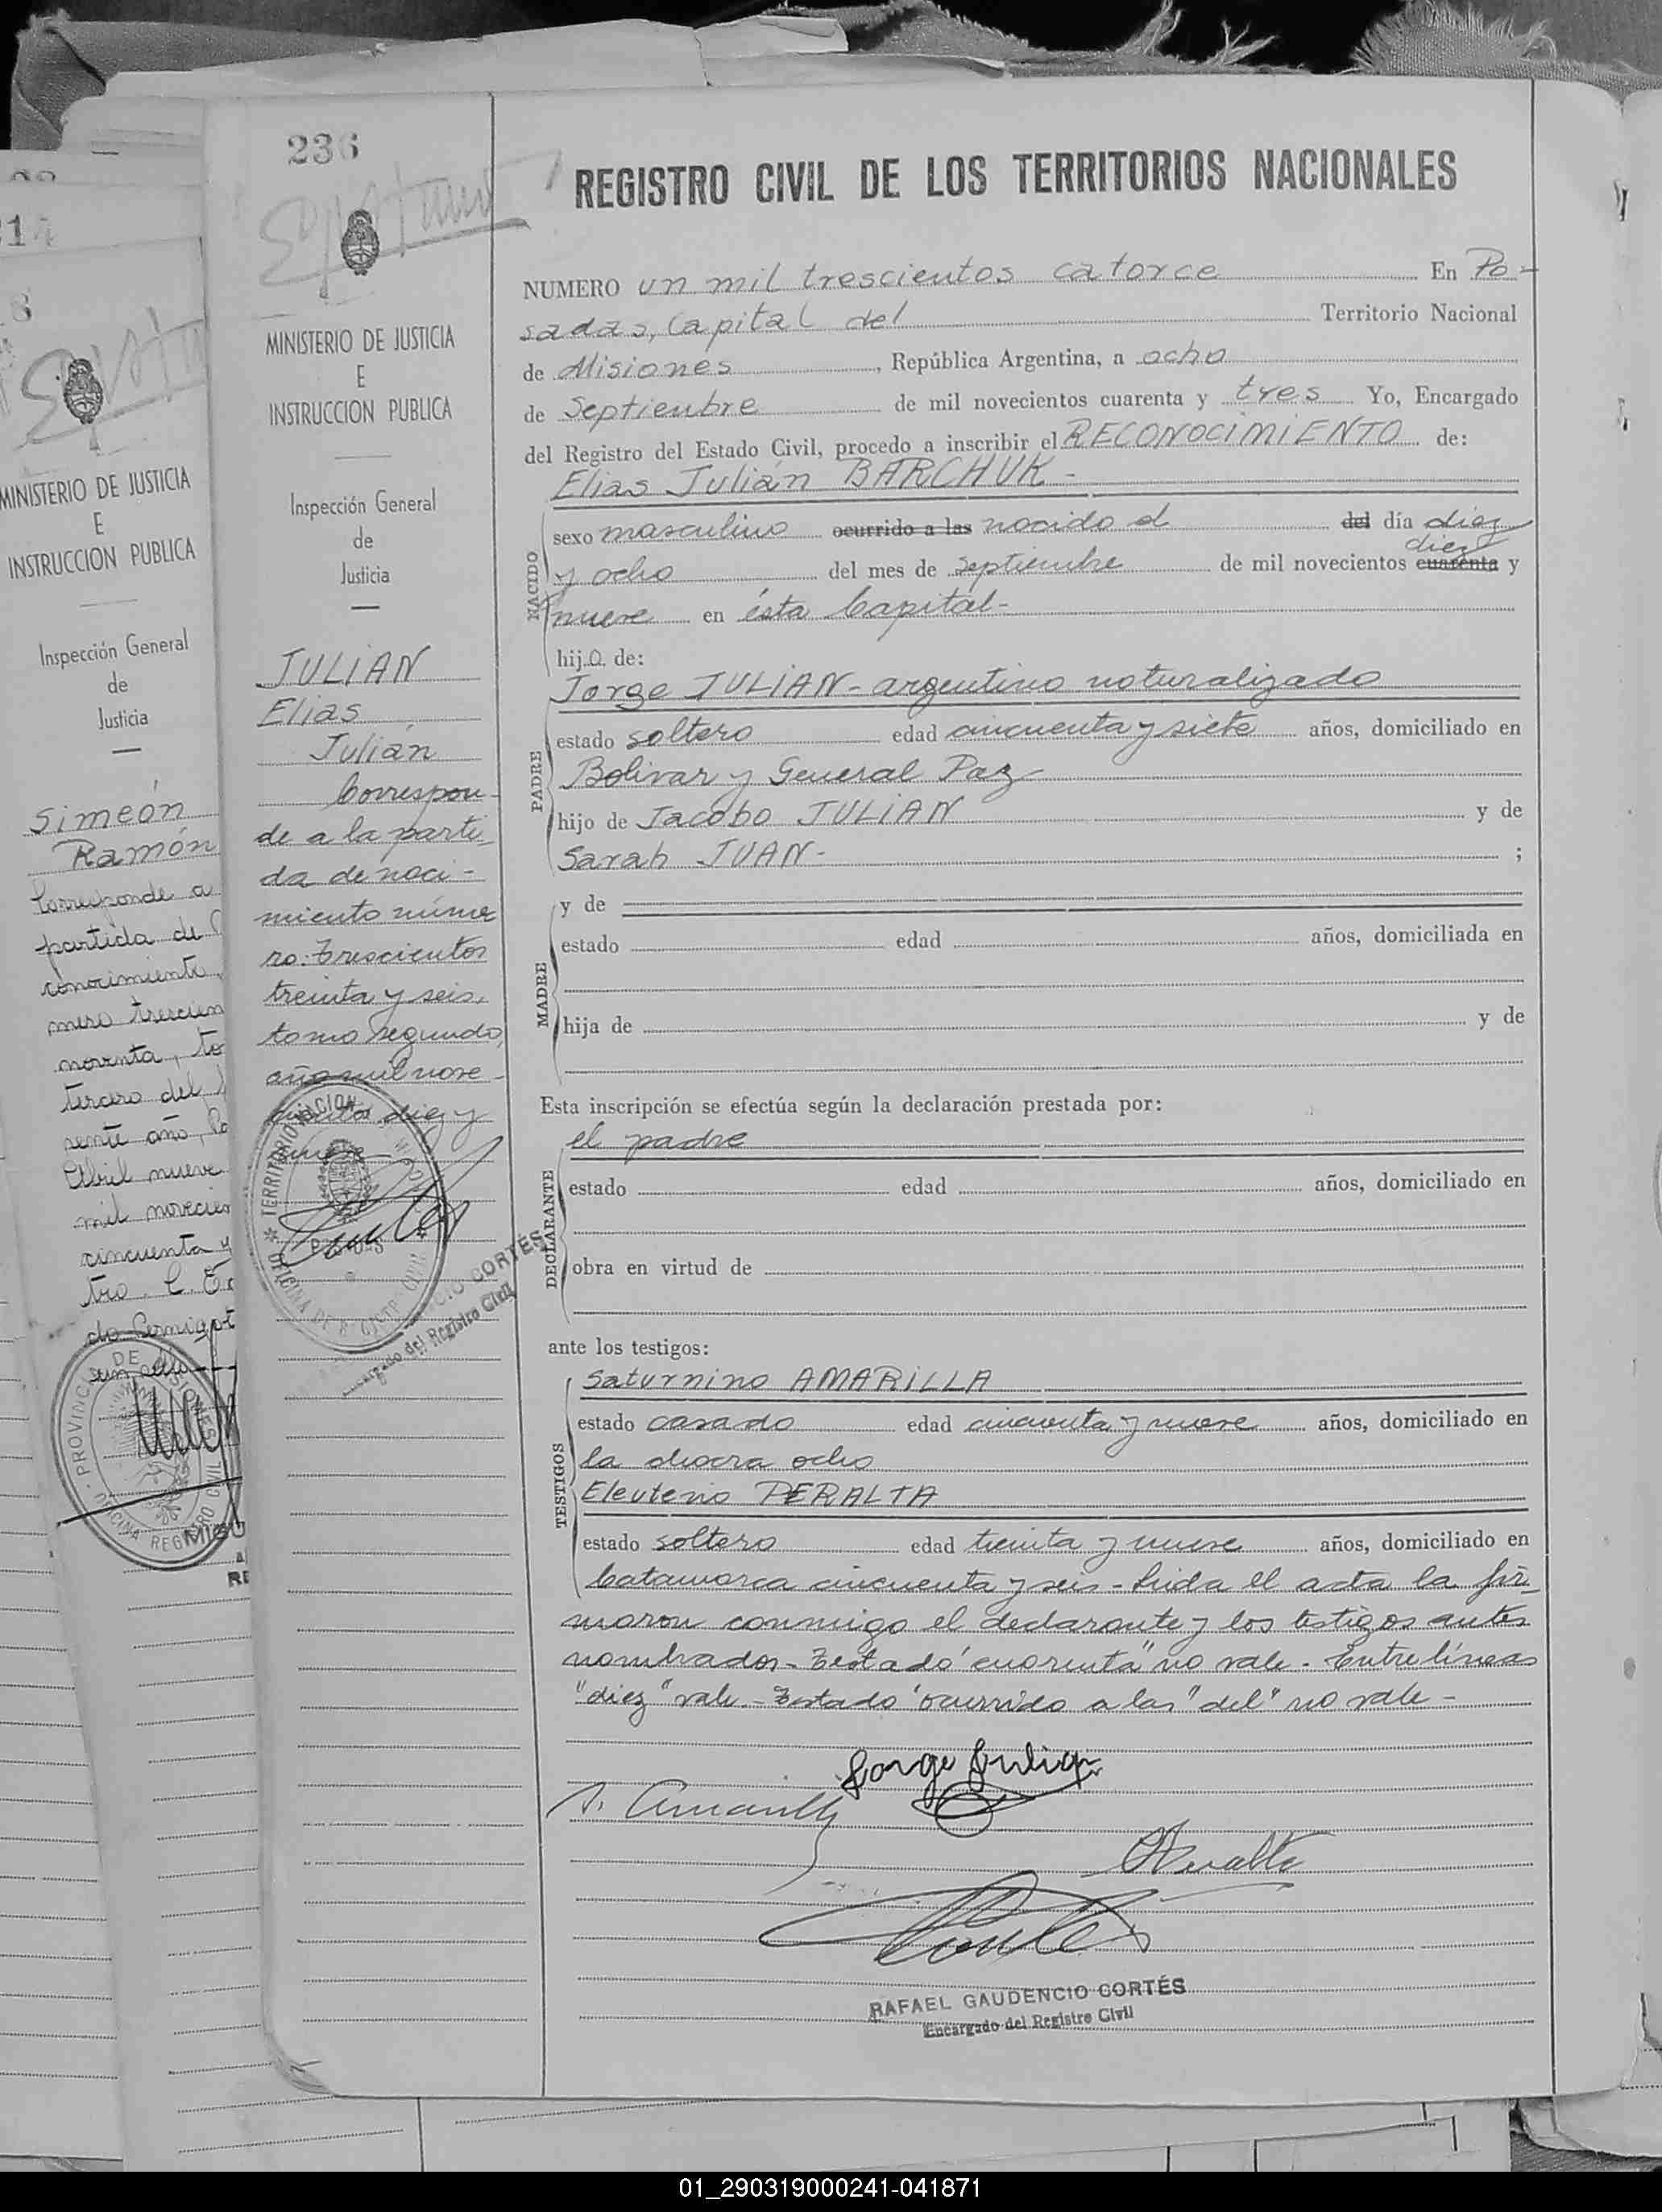 214
8
MINISTERIO DE JUSTICIA
E
INSTRUCCION PUBLICA
Inspección General
de
Justicia
Simeón
Ramón
Corresponde a
partida de
conocimiento,
mero trescien
noventa, to
tercero del
sente año,
Abril nueve
mil novecien
cincuenta y
tro.
236
MINISTERIO DE JUSTICIA
E
INSTRUCCION PUBLICA
Inspección General
de
Justicia
JULIAN
Elías
Julián
Correspon-
de a la parti-
da de naci-
miento núme
ro: Trescientos
treinta y seis,
tomo segundo,
año mil nove-
cientos diez y
nueve
REGISTRO CIVIL DE LOS TERRITORIOS NACIONALES
NUMERO un mil trescientos catorce En Po-
sadas, Capital del Territorio Nacional
de Misiones, República Argentina, a ocho
de Septiembre de mil novecientos cuarenta y tres Yo, Encargado
del Registro del Estado Civil, procedo a inscribir el RECONOCIMIENTO de:
Elías Julián BARCHUK-
NACIDO
sexo masculino ocurrido a las nacido el del día diez
diez
y ocho del mes de septiembre de mil novecientos cuarenta y
nueve en ésta Capital-
hijo de:
PADRE
Jorge JULIAN-argentino naturalizado
estado soltero edad cincuenta y siete años, domiciliado en
Bolivar y General Paz-
hijo de Jacobo JULIAN y de
Sarah JUAN- ;
MADRE
y de
estado edad años, domiciliada en
hija de y de
Esta inscripción se efectúa según la declaración prestada por:
DECLARANTE
el padre
estado edad años, domiciliado en
obra en virtud de
ante los testigos:
TESTIGOS
Saturnino AMARILLA
estado casado edad cincuenta y nueve años, domiciliado en
la chacra ocho
Eleuterio PERALTA
estado soltero edad treinta y nueve años, domiciliado en
Catamarca cincuenta y seis-Leída el acta la fir-
maron conmigo el declarante y los testigos antes
nombrados-Testado "cuarenta" no vale-Entre líneas
"diez" vale-Testado "ocurrido a las" "del" no vale-
Jorge Julian
S. Amarilla
EPeralta
RAFAEL GAUDENCIO CORTÉS
Encargado del Registro Civil
01_290319000241-041871